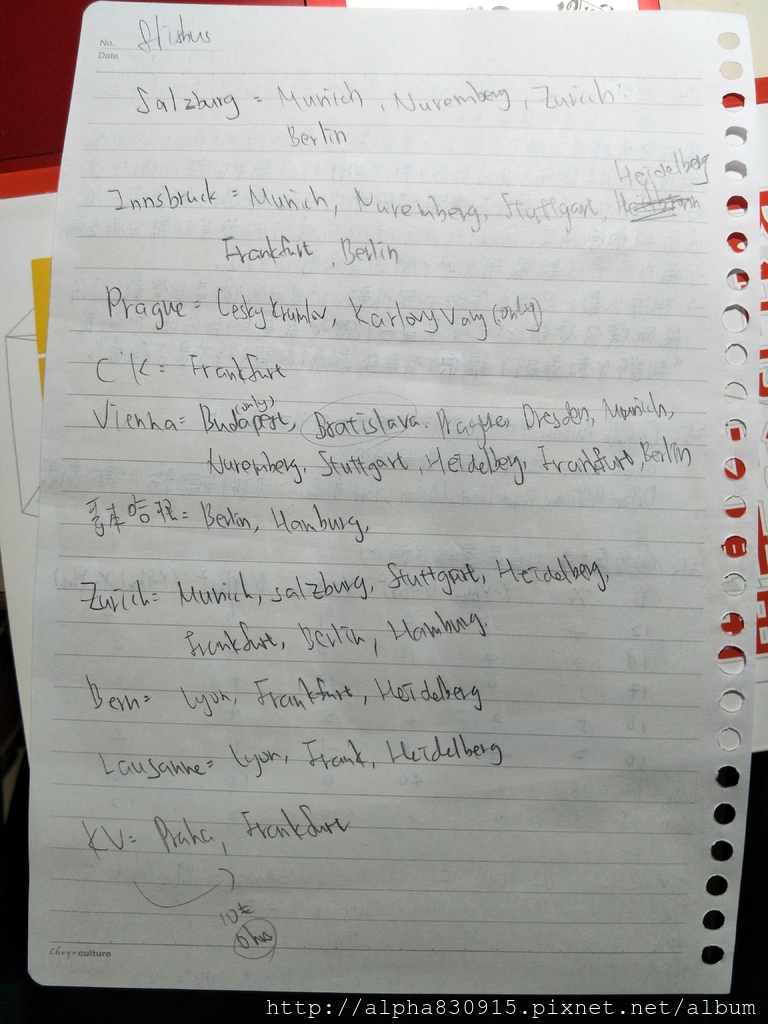 No. Flixbus
Date
Salzburg = Munich, Nuremberg, Zurich
Berlin
Heidelberg
Innsbruck = Munich, Nuremberg, Stuttgart,
Frankfurt, Berlin
Prague = Cesky Krumlov, Karlovy Vary (only)
CK = Frankfurt
(only)
Vienna = Budapest, Bratislava. Prague, Dresden, Munich,
Nuremberg, Stuttgart, Heidelberg, Frankfurt, Berlin
哥本哈根 = Berlin, Hamburg,
Zurich = Munich, Salzburg, Stuttgart, Heidelberg,
Frankfurt, Berlin, Hamburg.
Bern = Lyon, Frankfurt, Heidelberg
Lausanne = Lyon, Frank, Heidelberg
KV = Praha, Frankfurt
10€
6hrs
culture
http://alpha830915.pixnet.net/album